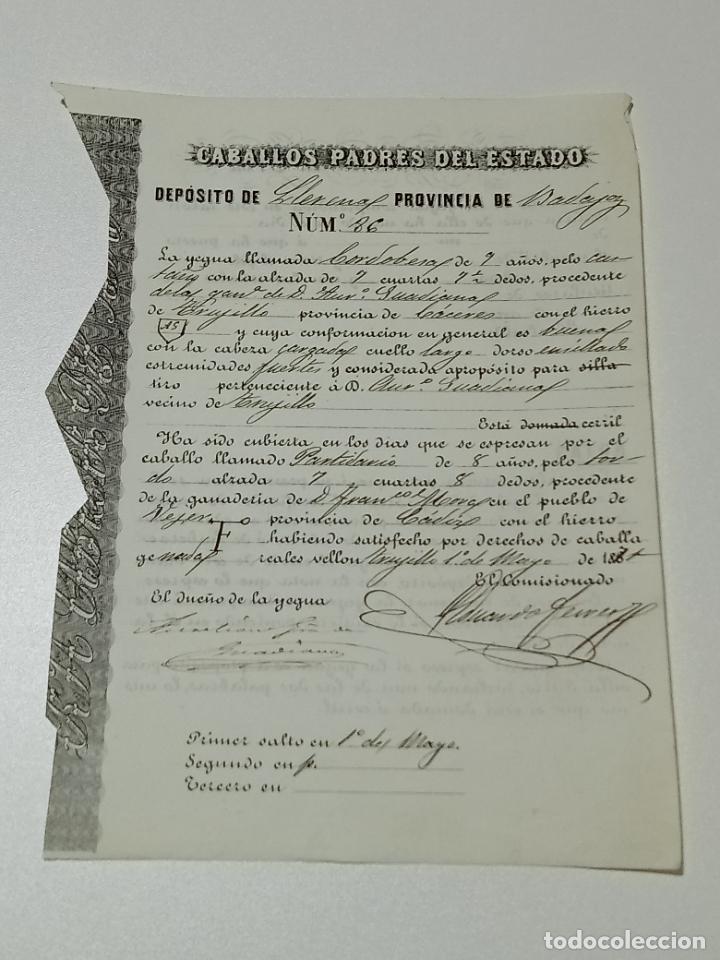 CABALLOS PADRES DEL ESTADO
DEPÓSITO DE Llerena PROVINCIA DE Badajoz
NÚM.º 86
La yegua llamada Cordobesa de 7 años, pelo cas-
taño con la alzada de 7 cuartas 7½ dedos, procedente
de la gan.ª de D. Aur.º Guadiana
de Trujillo provincia de Cáceres con el hierro
15 y cuya conformacion en general es buena
con la cabeza cargada cuello largo dorso ensillado
estremidades fuertes y considerada apropósito para silla
tiro perteneciente á D. Aur.º Guadiana
vecino de Trujillo
Está domada cerril
Ha sido cubierta en los dias que se espresan por el
caballo llamado Partidario de 8 años, pelo tor-
do alzada 7 cuartas 8 dedos, procedente
de la ganaderia de D. Fran.co Mora en el pueblo de
Vejer provincia de Cádiz con el hierro
habiendo satisfecho por derechos de caballa
ge nada reales vellon Trujillo 1.º de Mayo de 1871
El Comisionado
El dueño de la yegua
Eduardo Ferrer
Guadiana
Primer salto en 1.º de Mayo.
Segundo en
Tercero en
todocoleccion
todocoleccion.net